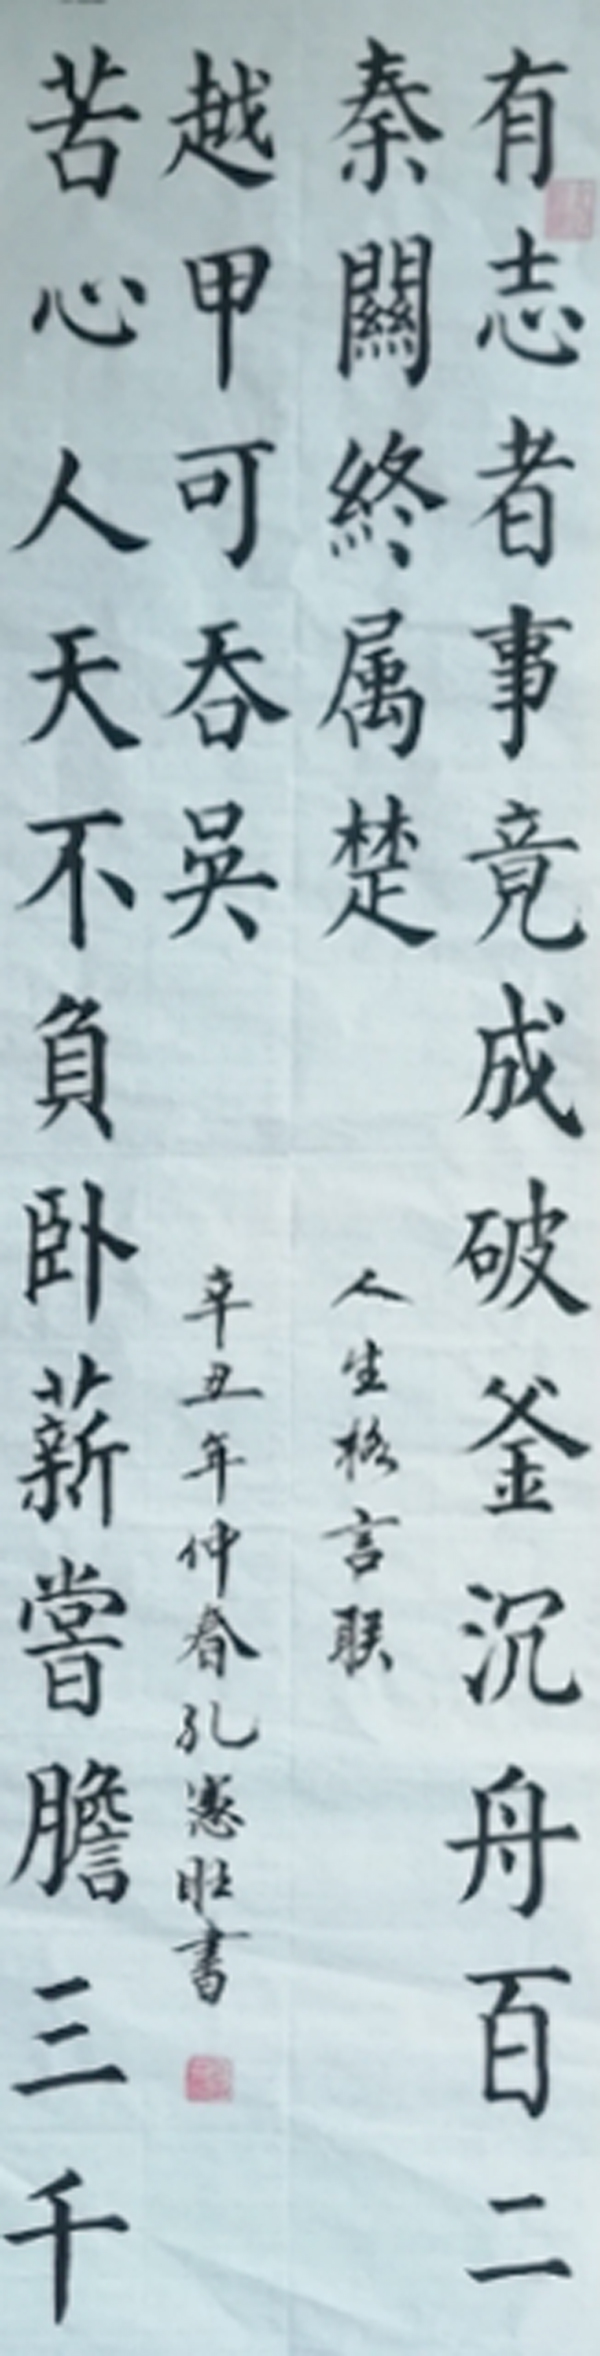 有志者事竟成破釜沉舟百二
秦關終属楚
人生格言联
苦心人天不負卧薪嘗膽三千
越甲可吞吳
辛丑年仲春孔憲旺書